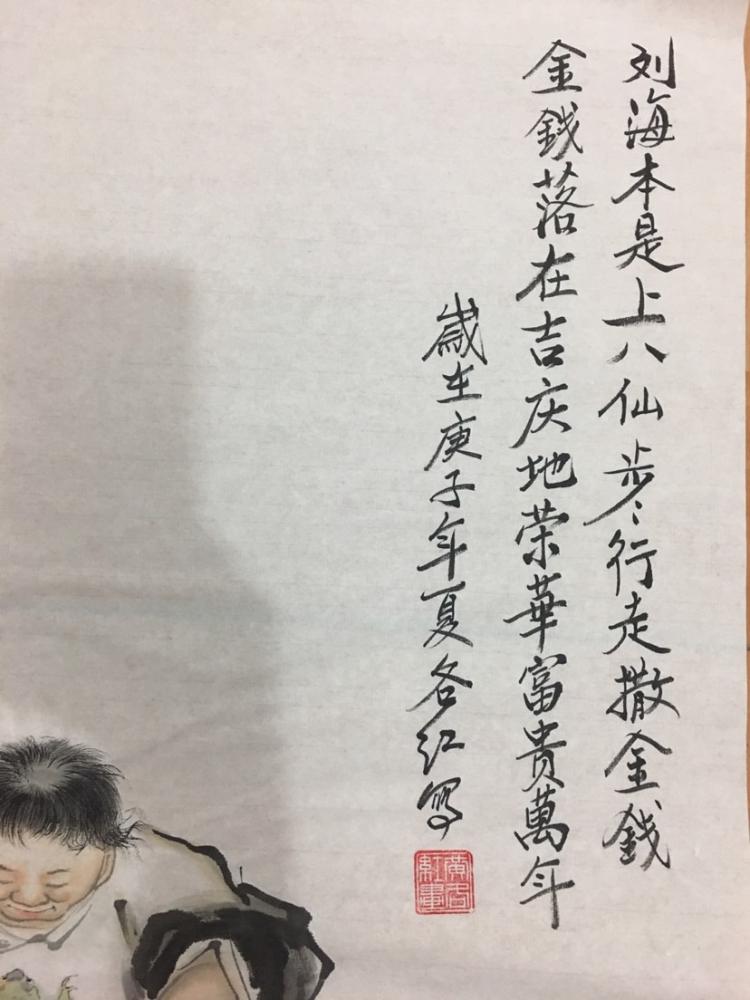 刘海本是上八仙步〻行走撒金錢
金錢落在吉庆地荣華富貴萬年
歲在庚子年夏谷红寫
黄谷
紅畫